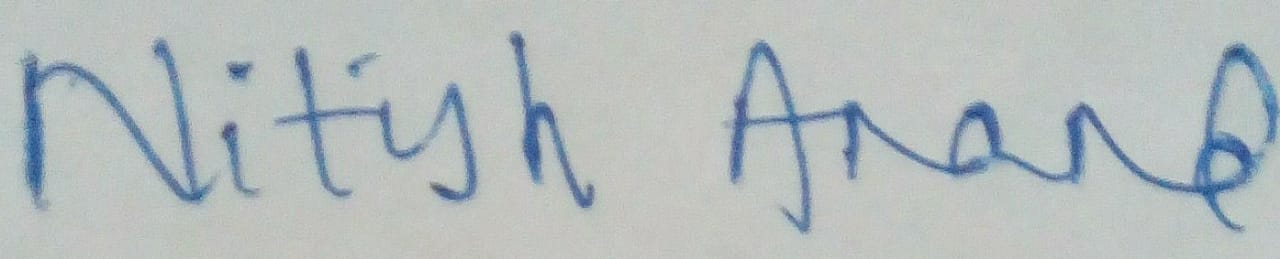 Nitish Anand